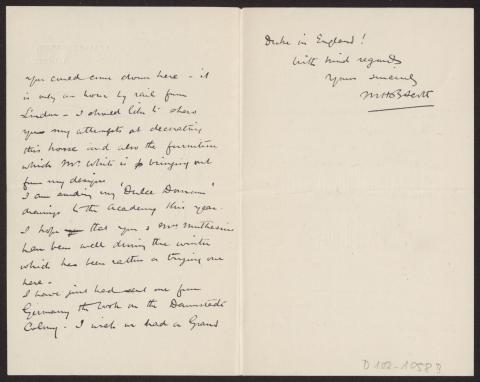 you could come down here - it
is only an hour by rail from
London - I should like to show
you my attempts at decorating
this house and also the furniture
which Mr White is bringing out
from my designs
I am sending my 'Dulce Domum'
drawings to the Academy this year.
I hope that you & Mrs Muthesius
have been well during the winter
which has been rather a trying one
here.
I have just had sent me from
Germany the book on the Darmstadt
Colony - I wish we had a Grand
Duke in England!
With kind regards
Yours sincerely
MHBScott
D 102-1058